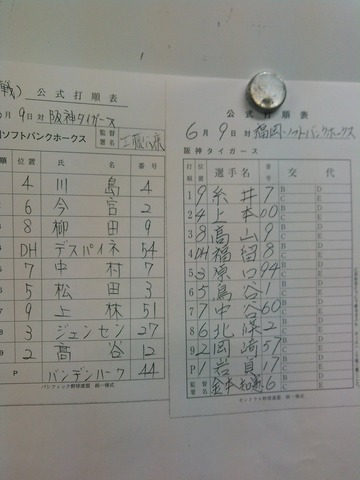 戦)
公式打順表
月9日対阪神タイガース
ソフトバンクホークス 監督署名 工藤公康
順 位置 氏名 番号
4 川島 4
6 今宮 2
8 柳田 9
DH デスパイネ 54
7 中村 7
5 松田 3
9 上林 51
3 ジェンセン 27
9 2 髙谷 12
P バンデンハーク 44
パシフィック野球連盟 統一様式
公式打順表
6月9日対福岡ソフトバンクホークス
阪神タイガース
打順 位置 選手名 交代
1 9 糸井 7 B C D E
2 4 上本 00 B C D E
3 8 高山 9 B C D E
4 DH 福留 8 B C D E
5 3 原口 94 B C D E
6 5 鳥谷 1 B C D E
7 7 中谷 60 B C D E
8 6 北條 2 B C D E
9 2 岡崎 57 B C D E
P 1 岩貞 17 B C D E
監督署名 金本知憲 6 B C D E
セントラル野球連盟 統一様式